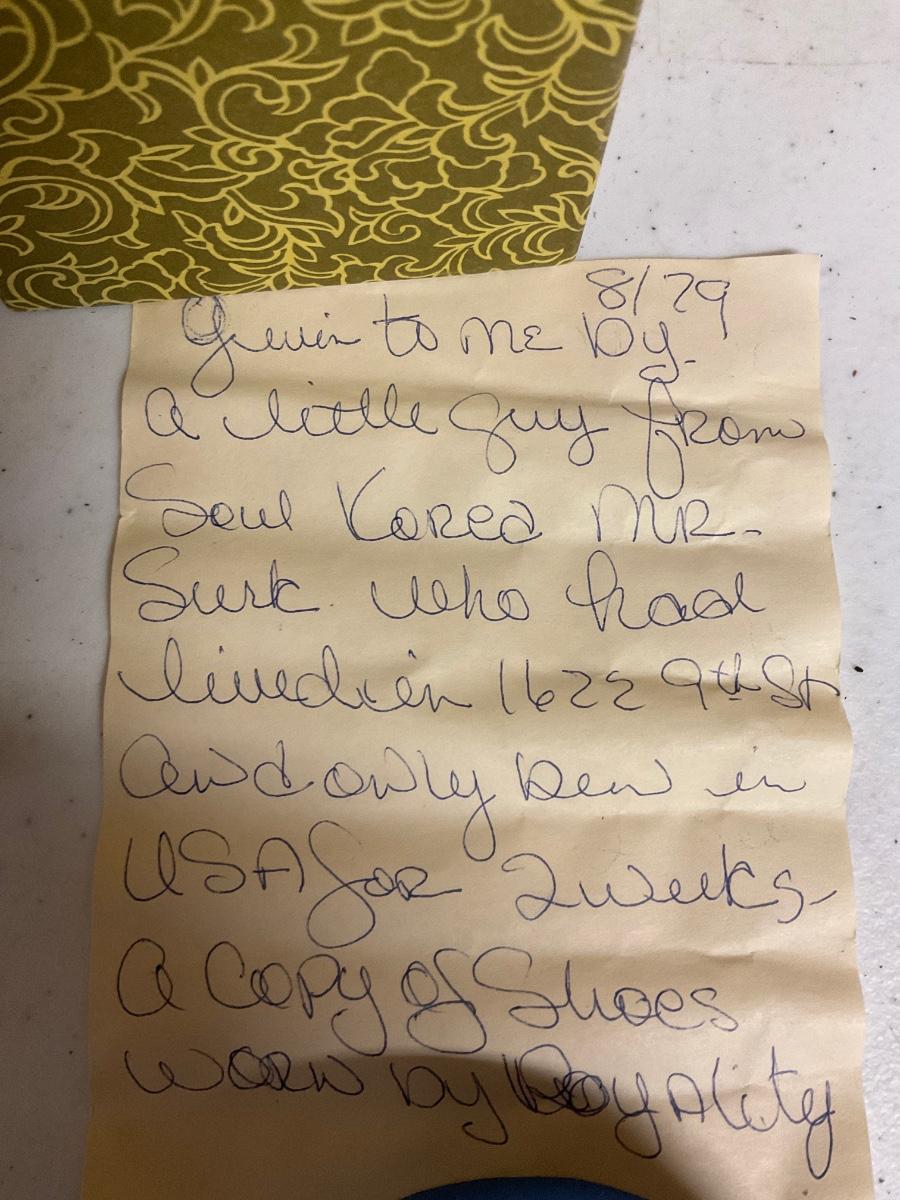 8/79
Given to me by
a little guy from
Soul Korea MR.
Surk who had
lived in 1622 9th St
and only been in
USA for 2 weeks-
A Copy of Shoes
worn by RoyAlity